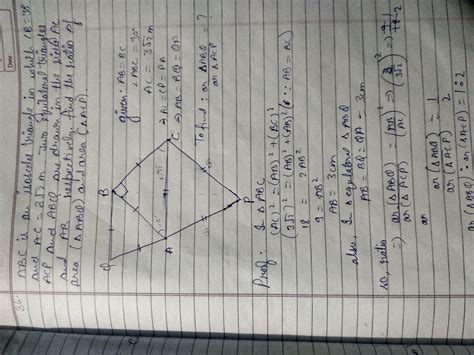 36. ABC is an isosceles triangle in which ∠B = 90°
and AC = 3√2 m. Two equilateral triangles
ACP and ABQ are drawn in the sides AC
and AB respectively. find the ratio of
area (△ABQ) and area (△ACP).
given: AB = BC
∠ABC = 90°
AC = 3√2 m
⇒ AC = CP = PA
⇒ AB = BQ = QA
To find: ar △ABQ = ?
ar △ACP
Q
B
A
C
P
Proof: I △ABC
(AC)² = (AB)² + (BC)²
(3√2)² = (AB)² + (AB)² (∵ AB = BC)
18 = 2AB²
9 = AB²
AB = 3cm
also, I equilateral △ABQ
AB = BQ = QA = 3cm
so, ratio
⇒ ar(△ABQ) / ar(△ACP) = (AB / AC)² ⇒ (3 / 3√2)² ⇒ 9 / 18 = 1 / 2
ar(△ABQ) / ar(△ACP) = 1 / 2
ar(△ABQ) : ar(△ACP) = 1:2